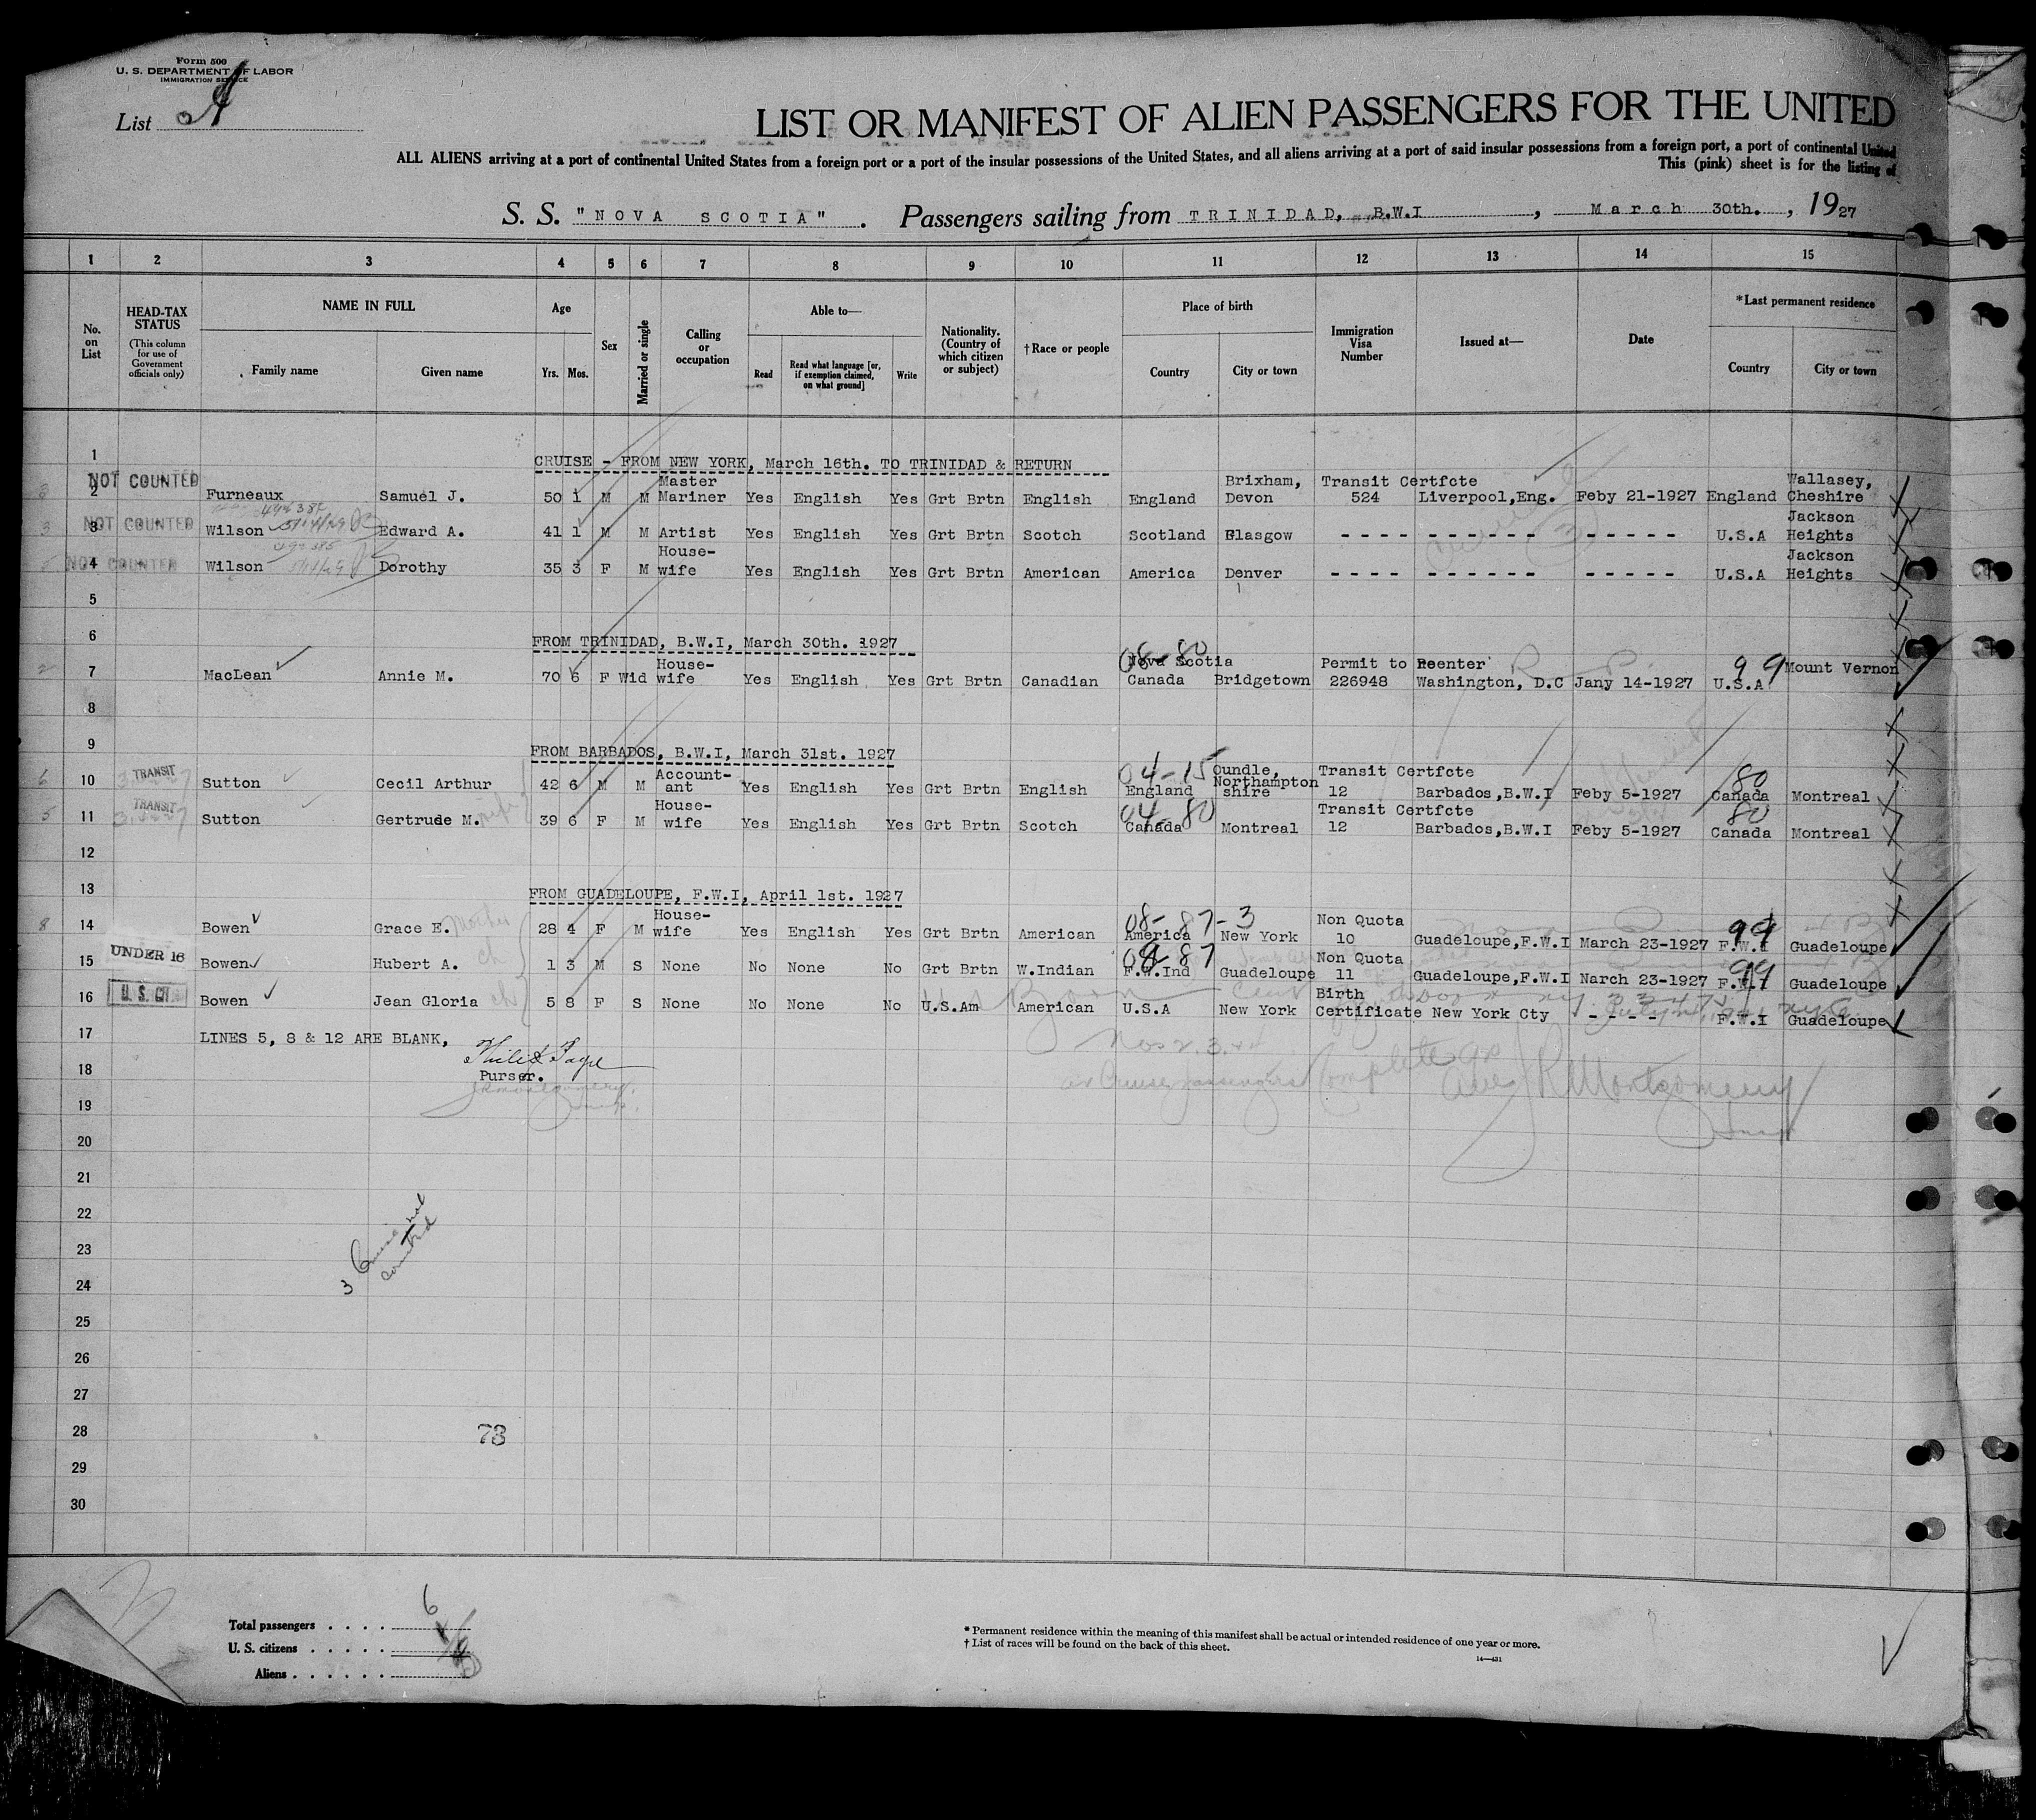 Form 500
U. S. DEPARTMENT OF LABOR
IMMIGRATION SERVICE
List A
LIST OR MANIFEST OF ALIEN PASSENGERS FOR THE UNITED
ALL ALIENS arriving at a port of continental United States from a foreign port or a port of the insular possessions of the United States, and all aliens arriving at a port of said insular possessions from a foreign port, a port of continental United
This (pink) sheet is for the listing of
S. S. "NOVA SCOTIA". Passengers sailing from TRINIDAD, B.W.I, March 30th., 1927
1 2 3 4 5 6 7 8 9 10 11 12 13 14 15
No. on List
HEAD-TAX STATUS
(This column for use of Government officials only)
NAME IN FULL
Family name Given name
Age
Yrs. Mos.
Sex
Married or single
Calling or occupation
Able to—
Read
Read what language [or, if exemption claimed, on what ground]
Write
Nationality. (Country of which citizen or subject)
†Race or people
Place of birth
Country City or town
Immigration Visa Number
Issued at—
Date
*Last permanent residence
Country City or town
1
CRUISE - FROM NEW YORK, March 16th. TO TRINIDAD & RETURN
NOT COUNTED
3 2 Furneaux Samuel J. 50 1 M M Master Mariner Yes English Yes Grt Brtn English England Brixham, Devon Transit Certfcte 524 Liverpool,Eng. Feby 21-1927 England Wallasey, Cheshire
3 NOT COUNTED 3 Wilson Edward A. 41 1 M M Artist Yes English Yes Grt Brtn Scotch Scotland Glasgow - - - - - - - - - - - - - - - U.S.A Jackson Heights
NOT COUNTED 4 Wilson Dorothy 35 3 F M House-wife Yes English Yes Grt Brtn American America Denver - - - - - - - - - - - - - - - U.S.A Jackson Heights
5
6
FROM TRINIDAD, B.W.I, March 30th. 1927
08-80
2 7 MacLean Annie M. 70 6 F Wid House-wife Yes English Yes Grt Brtn Canadian Nova Scotia Canada Bridgetown Permit to Reenter 226948 Washington, D.C Jany 14-1927 99 U.S.A Mount Vernon
8
9
FROM BARBADOS, B.W.I, March 31st. 1927
04-15
6 10 TRANSIT Sutton Cecil Arthur 42 6 M M Account-ant Yes English Yes Grt Brtn English England Oundle, Northampton shire Transit Certfcte 12 Barbados,B.W.I Feby 5-1927 80 Canada Montreal
04-80
5 11 TRANSIT Sutton Gertrude M. wife 39 6 F M House-wife Yes English Yes Grt Brtn Scotch Canada Montreal Transit Certfcte 12 Barbados,B.W.I Feby 5-1927 80 Canada Montreal
12
13
FROM GUADELOUPE, F.W.I, April 1st. 1927
08-87-3
8 14 Bowen Grace E. Mother 28 4 F M House-wife Yes English Yes Grt Brtn American America New York Non Quota 10 Guadeloupe,F.W.I March 23-1927 99 F.W.I Guadeloupe
UNDER 16
15 Bowen Hubert A. ch 1 3 M S None No None No Grt Brtn W.Indian F.W.Ind Guadeloupe Non Quota 11 Guadeloupe,F.W.I Narch 23-1927 99 F.W.I Guadeloupe
U.S. CIT
16 Bowen Jean Gloria ch 5 8 F S None No None No U.S.Am American U.S.A New York Birth Certificate New York Cty - - - - F.W.I Guadeloupe
17 LINES 5, 8 & 12 ARE BLANK,
18 Purser.
Nos 2. 3. 4
as Cruise passengers Complete
J R Montgomery
19
20
21
22
23
3 Cruise not counted
24
25
26
27
28 73
29
30
Total passengers . . . . 6
U. S. citizens . . . . .
Aliens . . . . . .
* Permanent residence within the meaning of this manifest shall be actual or intended residence of one year or more.
† List of races will be found on the back of this sheet.
14—431